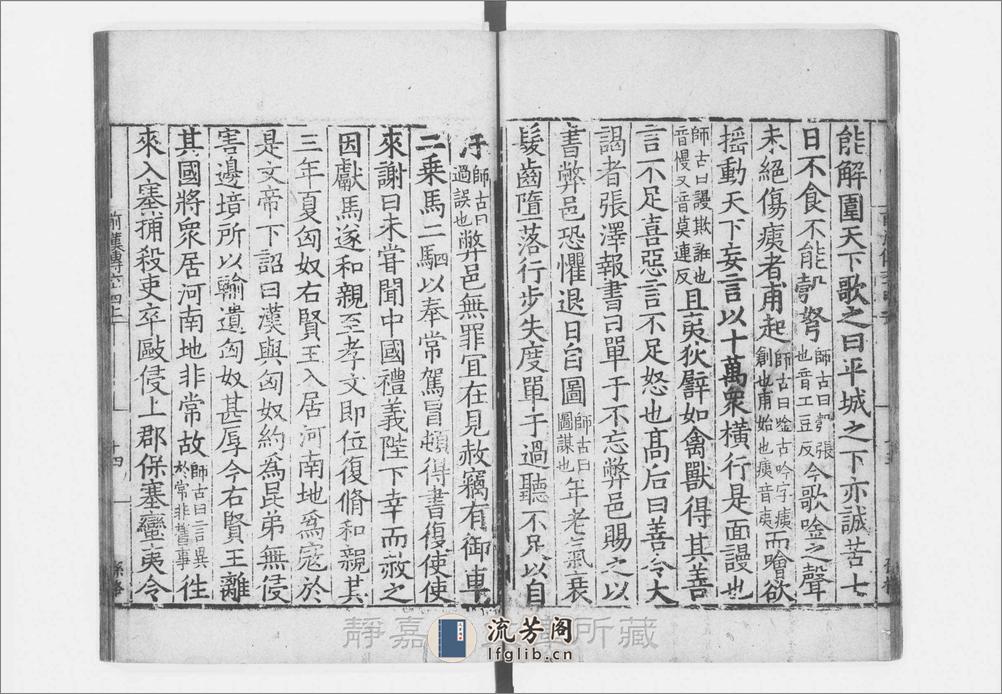 能解圍天下歌之曰平城之下亦誠苦七
日不食不能彀弩師古曰彀張也音工豆反今歌唫之聲
未絕傷痍者甫起師古曰唫古吟字痍創也甫始也痍音夷而噲欲
摇動天下妄言以十萬衆橫行是面謾也
師古曰謾欺誑也音慢又音莫連反且夷狄譬如禽獸得其善
言不足喜惡言不足怒也髙后曰善令大
謁者張澤報書曰單于不忘弊邑賜之以
書弊邑恐懼退日自圖師古曰圖謀也年老氣衰
髮齒墮落行步失度單于過聽不足以自
汙師古曰過誤也弊邑無罪宜在見赦竊有御車
二乘馬二駟以奉常駕冒頓得書復使使
來謝曰未甞聞中國禮義陛下幸而赦之
因獻馬遂和親至孝文即位復脩和親其
三年夏匈奴右賢王入居河南地爲寇於
是文帝下詔曰漢與匈奴約爲昆弟無侵
害邊境所以輸遺匈奴甚厚今右賢王離
其國將衆居河南地非常故師古曰言異於常非舊事徃
來入塞捕殺吏卒敺侵上郡保塞蠻夷令
前漢傳六十四上
十四
靜嘉
所藏
流芳阁
lfglib.cn